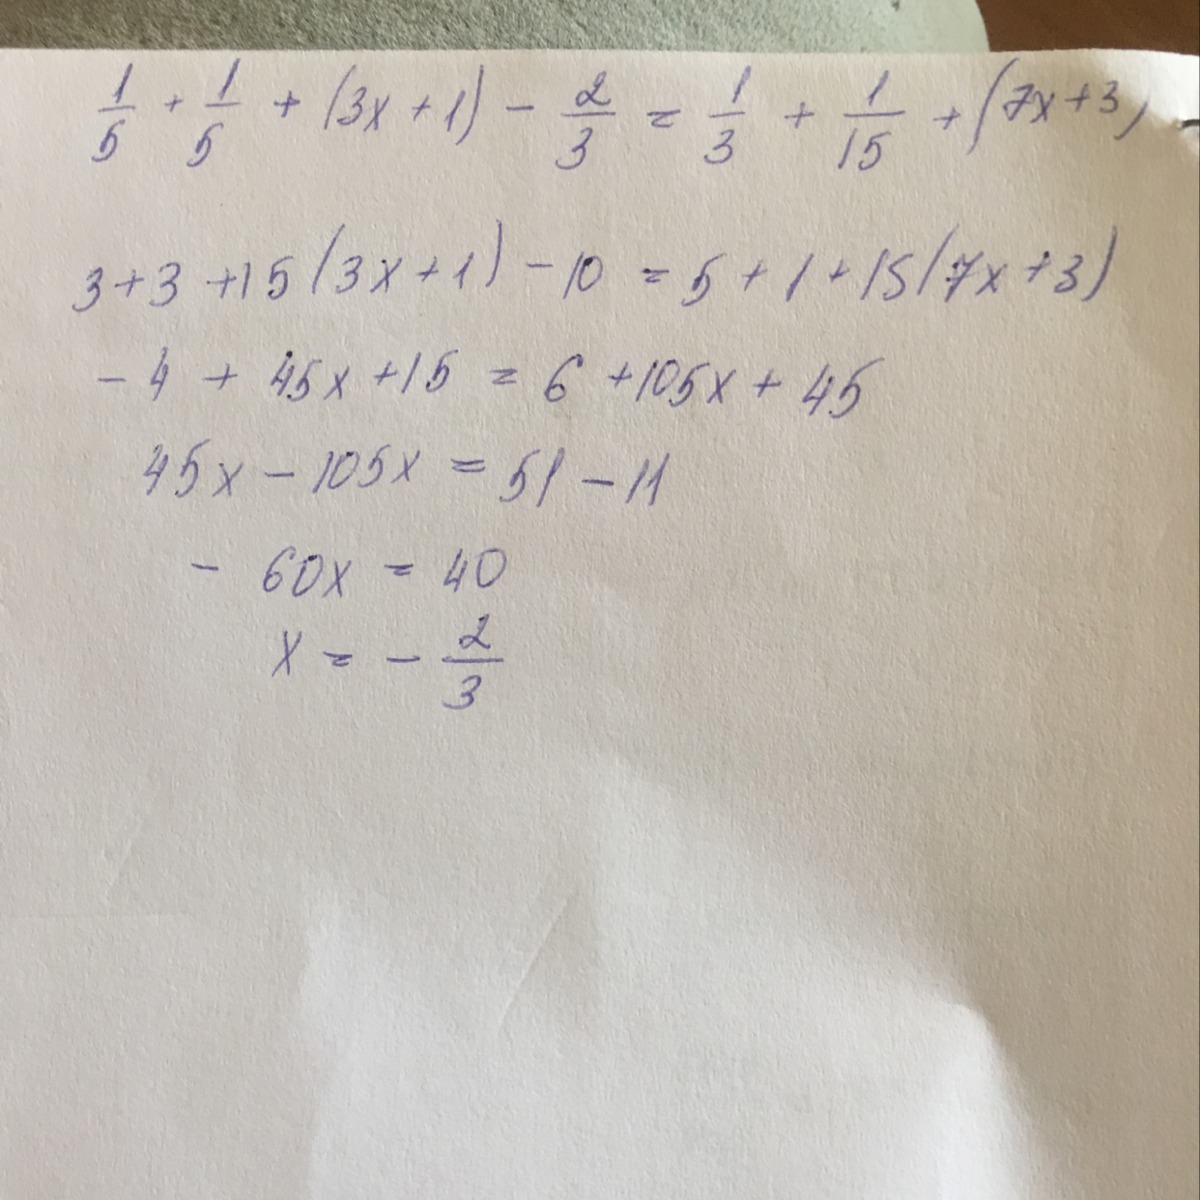 1/5 + 1/5 + (3x + 1) - 2/3 = 1/3 + 1/15 + (7x + 3)
3 + 3 + 15 (3x + 1) - 10 = 5 + 1 + 15 (7x + 3)
- 4 + 45x + 15 = 6 + 105x + 45
45x - 105x = 51 - 11
- 60x = 40
x = - 2/3